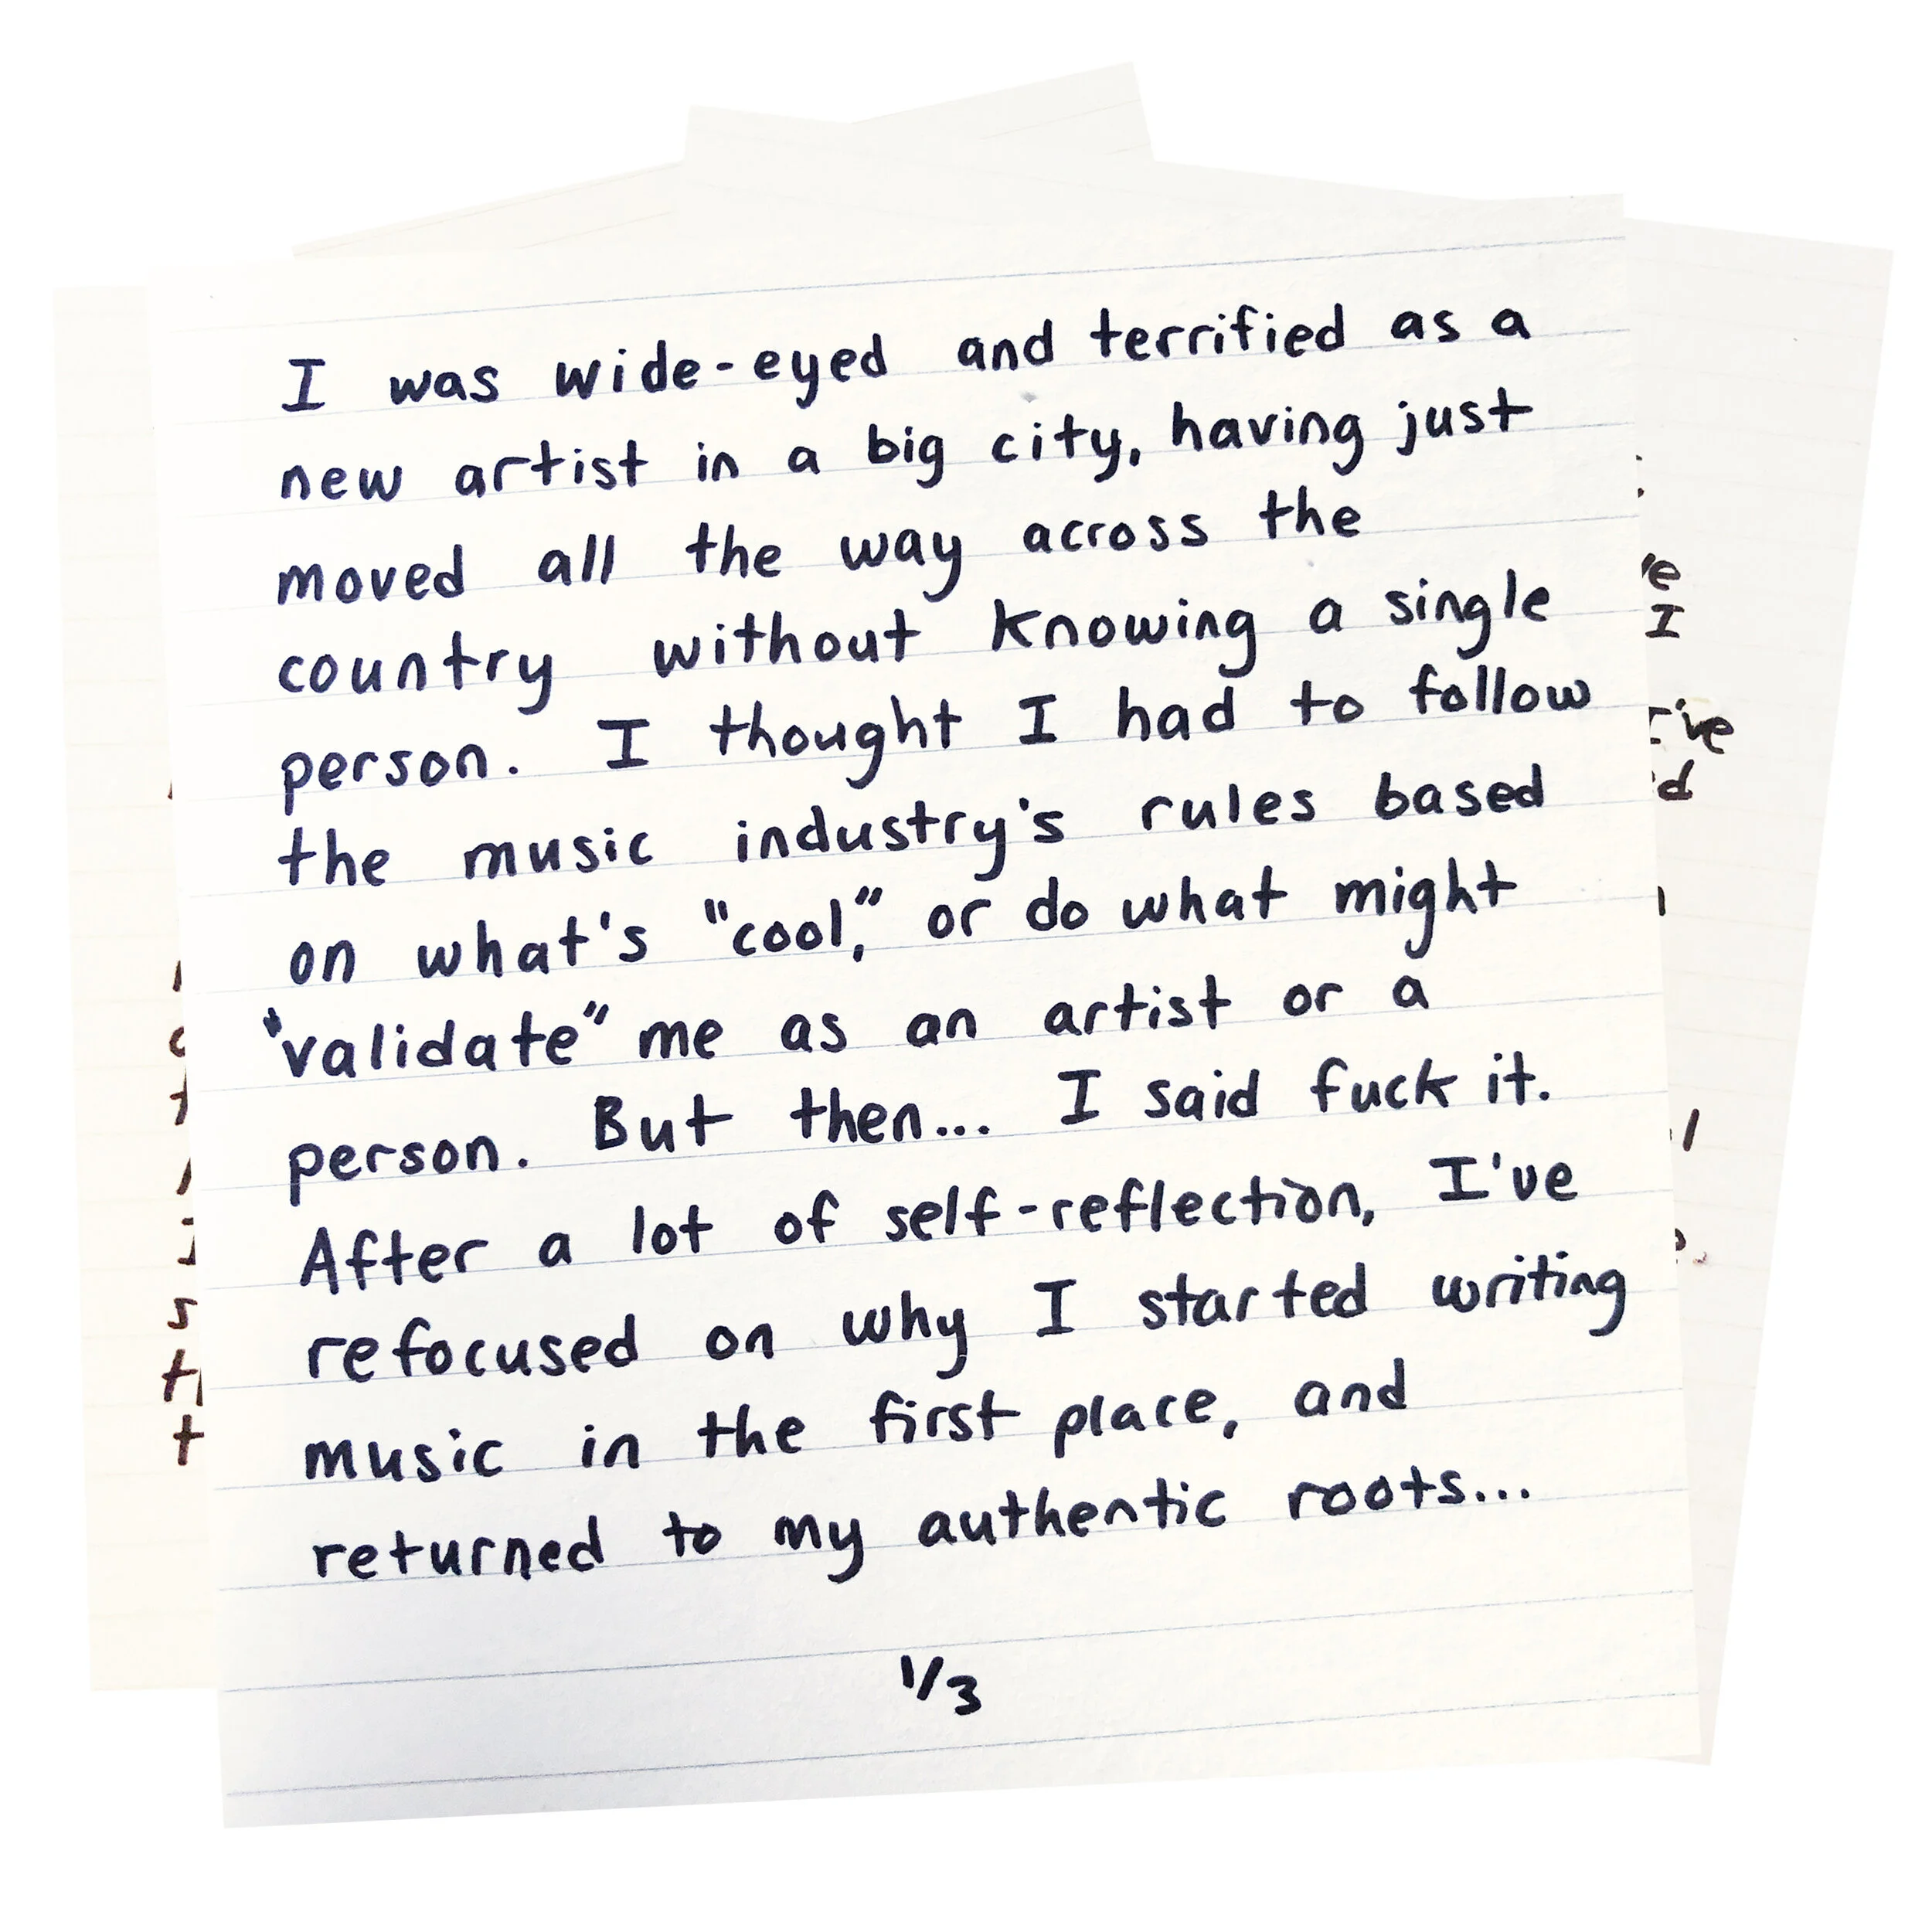 I was wide-eyed and terrified as a
new artist in a big city, having just
moved all the way across the
country without knowing a single
person. I thought I had to follow
the music industry's rules based
on what's "cool," or do what might
"validate" me as an artist or a
person. But then... I said fuck it.
After a lot of self-reflection, I've
refocused on why I started writing
music in the first place, and
returned to my authentic roots...
1/3